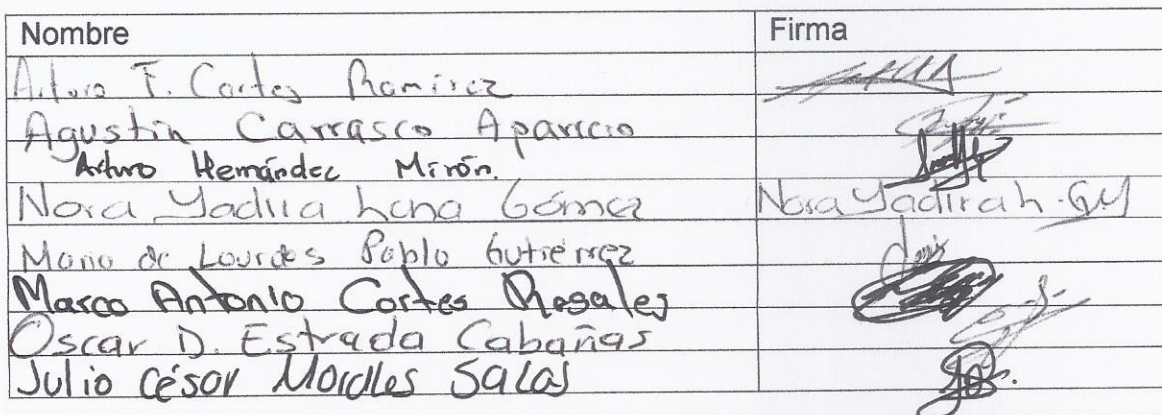 Nombre Firma
Arturo F. Cortes Ramirez
Agustin Carrasco Aparicio
Arturo Hernández Mirón.
Nora Yadira Luna Gómez Nora Yadira L. GM
Maria de Lourdes Pablo Gutiérrez
Marco Antonio Cortes Rosales
Oscar D. Estrada Cabañas
Julio César Morales Salas